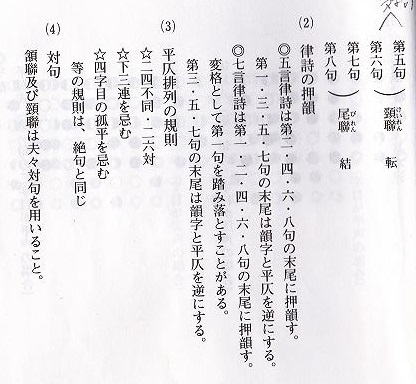 第五句
第六句 頸聯 けいれん 転
第七句
第八句 尾聯 びれん 結
(2) 律詩の押韻
◎五言律詩は第二・四・六・八句の末尾に押韻す。
第一・三・五・七句の末尾は韻字と平仄を逆にする。
◎七言律詩は第一・二・四・六・八句の末尾に押韻す。
変格として第一句を踏み落とすことがある。
第三・五・七句の末尾は韻字と平仄を逆にする。
(3) 平仄排列の規則
☆二四不同・二六対
☆下三連を忌む
☆四字目の孤平を忌む
等の規則は、絶句と同じ
(4) 対句
頷聯及び頸聯は夫々対句を用いること。